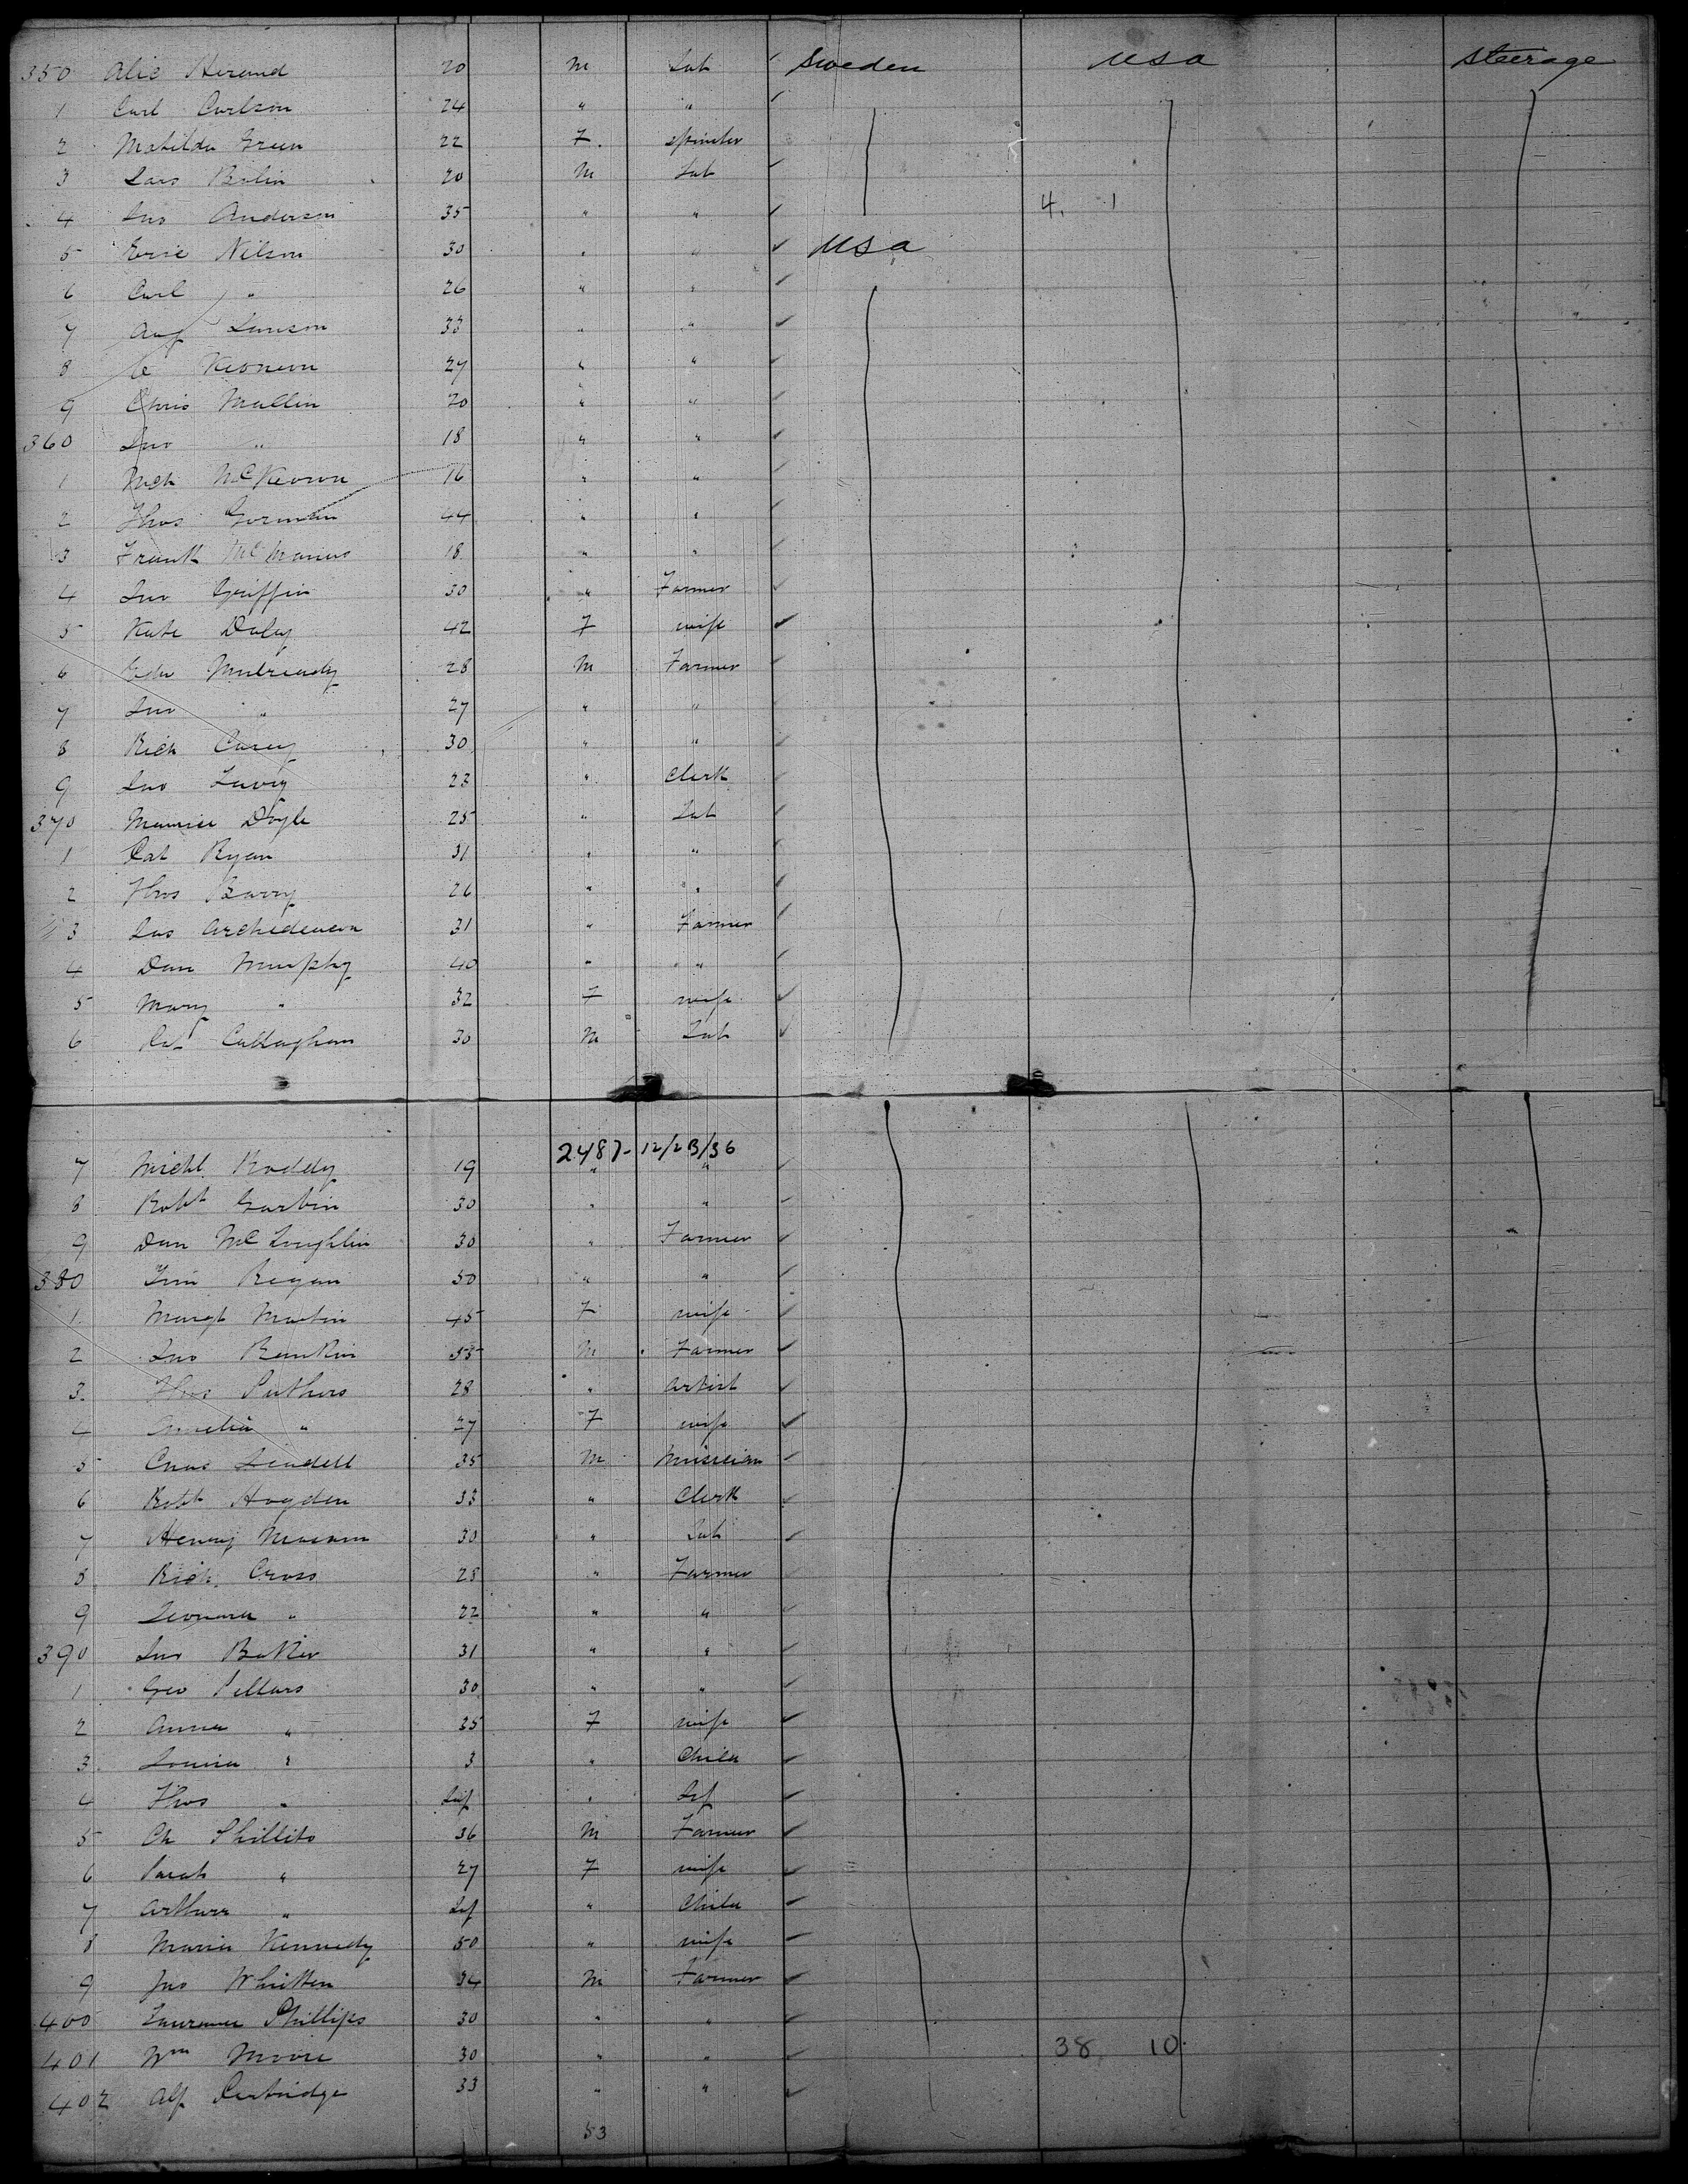 350 Alic 20 m Lab ✓ Sweden USA Steerage
1 Carl Carlson 24 " " ✓
2 Matilda Green 22 F. spinster
3 Lars Bolin 20 M Lab ✓
4 Jno Anderson 35 " " ✓ 4. 1
5 Eric Nilson 30 " " ✓ USA
6 Carl " 26 " " ✓
7 Aug Larson 33 " " ✓
8 27 " " ✓
9 Chris Mallin 20 " " ✓
360 Jno " 18 " " ✓
1 Mch McKeown 16 " " ✓
2 Thos Gorman 44 " " ✓
3 Frank McManus 18 " " ✓
4 Jno Griffin 30 " Farmer ✓
5 Kate Daly 42 F wife ✓
6 Edw Mulready 28 M Farmer ✓
7 Jno " 27 " " ✓
8 Rich Carey 30 " " ✓
9 Jno 23 " Clerk ✓
370 Maurice Doyle 25 " Lab ✓
1 Pat Ryan 31 " " ✓
2 Thos Barry 26 " " ✓
3 Jas Archdeacon 31 " Farmer ✓
4 Dan Murphy 40 " " ✓
5 Mary " 32 F wife ✓
6 Callaghan 30 M Lab ✓
2487-12/23/36
7 Michl Roddy 19 " " ✓
8 Robt Garbin 30 " " ✓
9 Dan McLoughlin 30 " Farmer ✓
380 Tim Regan 50 " " ✓
1 Margt Martin 45 F wife ✓
2 Jno Rankin 55 M Farmer ✓
3. Thos Suthers 28 " Artist ✓
4 Amelia " 27 F wife ✓
5 Chas Lindell 35 M Musician ✓
6 Robt Hogden 33 " Clerk ✓
7 Henry 30 " Lab ✓
8 Rich. Cross 28 " Farmer ✓
9 Leonard " 22 " " ✓
390 Jno Baker 31 " " ✓
1 Geo Sellars 30 " " ✓
2 Anna " 35 F wife ✓
3. Louisa " 3 " Child ✓
4 Thos " Inf " Inf ✓
5 Ch Shillito 36 M Farmer ✓
6 Sarah " 27 F wife ✓
7 Arthur " Inf " Child ✓
8 Maria Kennedy 50 " wife ✓
9 Jno Whitten 34 M Farmer ✓
400 Laurence Phillips 30 " " ✓
401 Wm Moore 30 " " ✓ 38 10
402 Alf Partridge 33 " " ✓
53